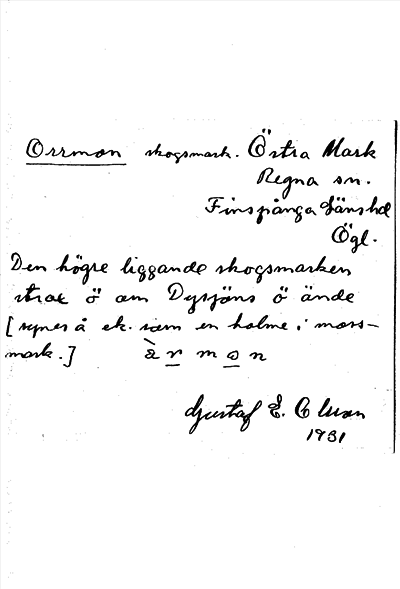 Orrmon skogsmark. Östra Mark
Regna sn.
Finspånga länshd
Ögl.
Den högre liggande skogsmarken
strax ö om Dysjöns ö ände
[synes å ek. som en holme i moss-
mark.] àrmon
Gustaf E. Olsson
1931